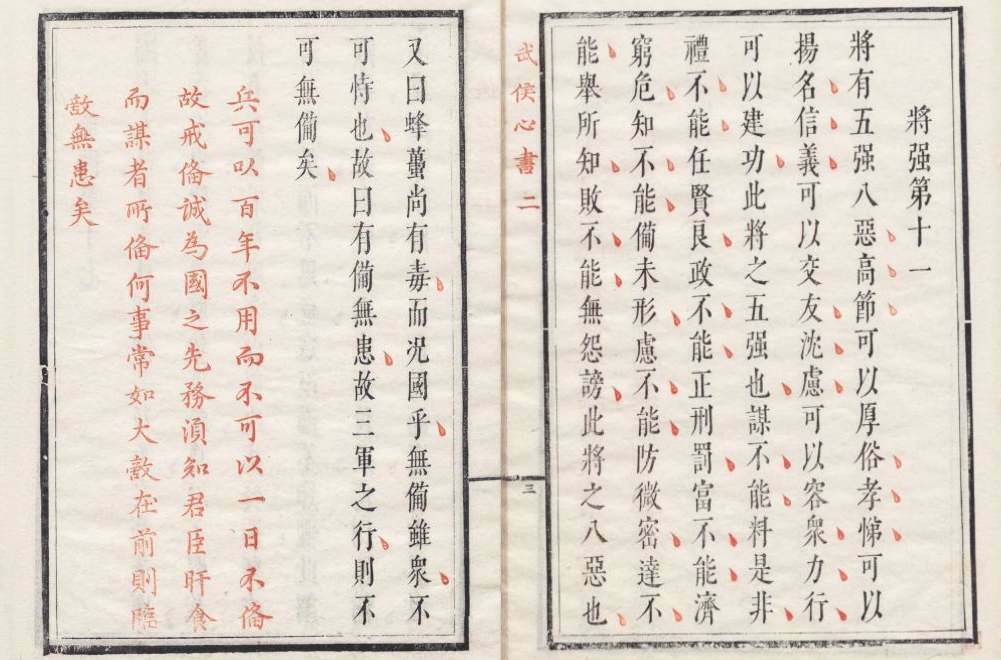 將强第十一
將有五强八惡高節可以厚俗孝悌可以
揚名信義可以交友沈慮可以容衆力行
可以建功此將之五强也謀不能料是非
禮不能任賢良政不能正刑罰富不能濟
窮危知不能備未形慮不能防微密達不
能舉所知敗不能無怨謗此將之八惡也
武侯心書 二
三
又曰蜂蠆尚有毒而况國乎無備雖衆不
可恃也故曰有備無患故三軍之行則不
可無備矣
兵可以百年不用而不可以一日不俻
故戒俻誠為國之先務須知君臣旰食
而謀者所俻何事常如大敵在前則臨
敵無患矣